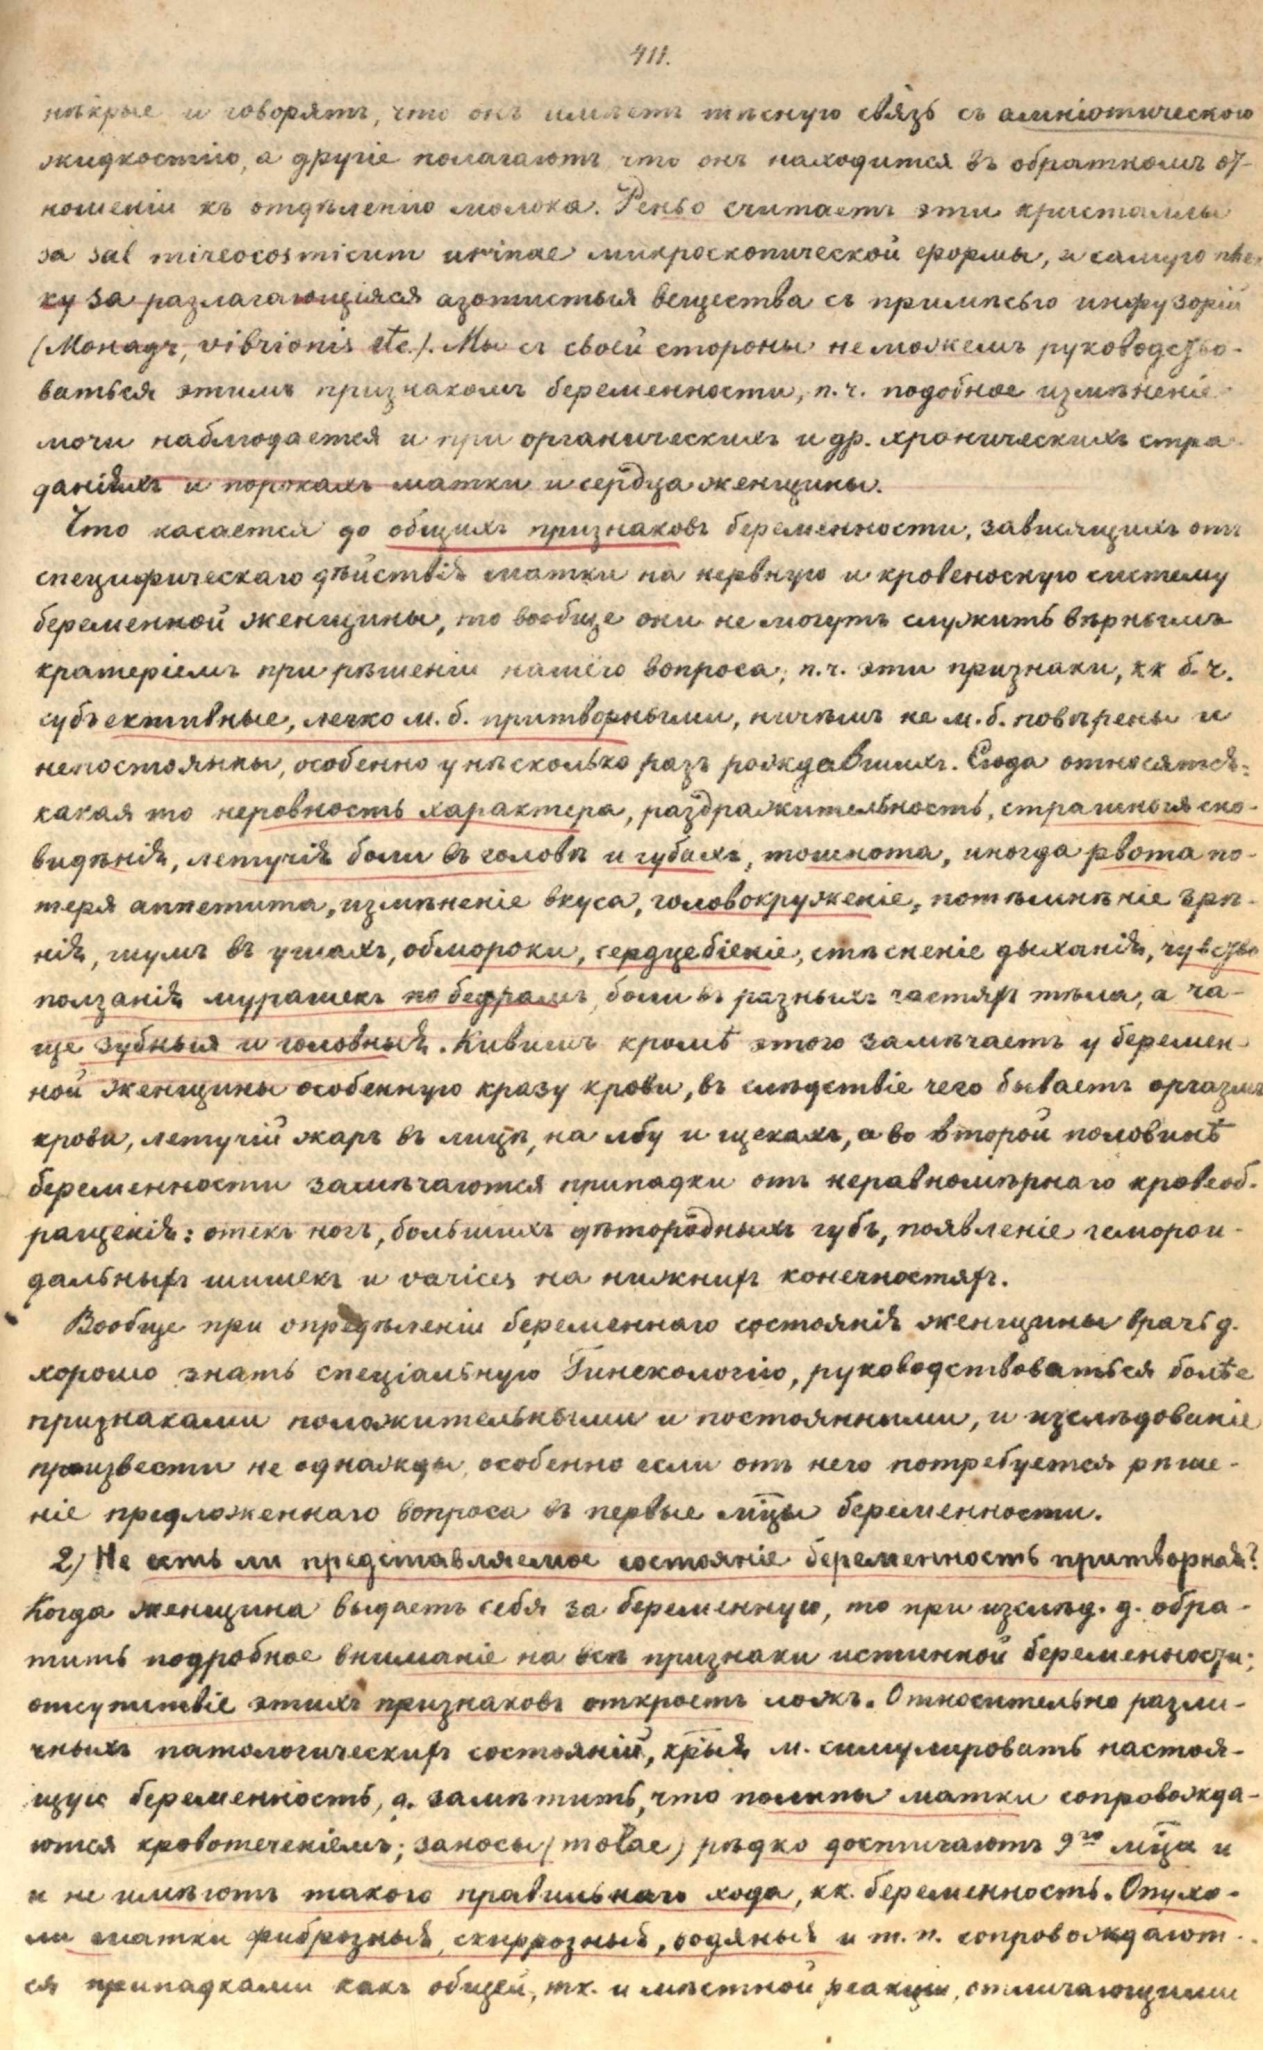 411.
нѣкрые и говорятъ, что онъ имѣетъ тѣсную связь съ амніотическою
жидкостію, а другіе полагаютъ что онъ находится въ обратномъ от-
ношеніи къ отдѣленію молока. Реньо считаетъ эти кристаллы
за sal mireocosmicum urinae микроскопической формы, а самую плен
ку за разлагающіяся азотистыя вещества съ примѣсью инфузорій
(Монадъ, vibrionis etc). Мы съ своей стороны не можемъ руководство-
ваться этимъ признакомъ беременности, п.ч. подобное измѣненіе
мочи наблюдается и при органическихъ и др. хроническихъ стра
даніяхъ и порокахъ матки и сердца женщины.
Что касается до общихъ признаковъ беременности, зависящихъ отъ
специфическаго дѣйствія матки на нервную и кровеносную систему
беременной женщины, то вообще они не могутъ служить вѣрнымъ
кратеріемъ при рѣшеніи нашего вопроса, п.ч. эти признаки, кк б.ч.
субъективные, легко м.б. притворными, ничѣмъ не м.б. повѣрены и
непостоянны, особенно у нѣсколько разъ рождавшихъ. Сюда относятся:
какая то неровность характера, раздражительность, страшныя сно-
видѣнія, летучія боли въ головѣ и губахъ, тошнота, иногда рвота по-
теря аппетита, измѣненіе вкуса, головокруженіе, потѣмнѣніе зрѣ-
нія, шумъ въ ушахъ, обмороки, сердцебіеніе, стѣсненіе дыханія, чувство
ползанія мурашекъ по бедрамъ, боли въ разныхъ частяхъ тѣла, а ча-
ще зубныя и головныя. Кивишъ кромѣ этого замѣчаетъ у беремен-
ной женщины особенную кразу крови, въ слѣдствіе чего бываетъ оргазмъ
крови, летучій жаръ въ лицѣ, на лбу и щекахъ, а во второй половинѣ
беременности замѣчаются припадки отъ неравномѣрнаго кровеоб-
ращенія: отекъ ногъ, большихъ дѣтородныхъ губъ, появленіе геморои-
дальныхъ шишекъ и varices на нижнихъ конечностяхъ.
Вообще при опредѣленіи беременнаго состоянія женщины врачъ д.
хорошо знать спеціальную Гинекологію, руководствоваться болѣе
признаками положительными и постоянными, и изслѣдованіе
произвести не однажды, особенно если отъ него потребуется рѣше-
ніе предложеннаго вопроса въ первые мцы беременности.
2) Не есть ли представляемое состояніе беременность притворная?
Когда женщина выдаетъ себя за беременную, то при изслѣд. д. обра-
тить подробное вниманіе на всѣ признаки истинной беременности;
отсутствіе этихъ признаковъ откроетъ ложь. Относительно разли-
чныхъ патологическихъ состояній, крыя м. симулировать настоя-
щую беременность, д. замѣтить, что полипы матки сопровожда-
ются кровотеченіемъ; заносы (molae) рѣдко достигаютъ 9го мца и
и не имѣютъ такого правильнаго хода, кк. беременность. Опухо-
ли матки фиброзныя, скиррозныя, водяныя и т.п. сопровождают-
ся припадками какъ общей, тк. и мѣстной реакціи, отличающими